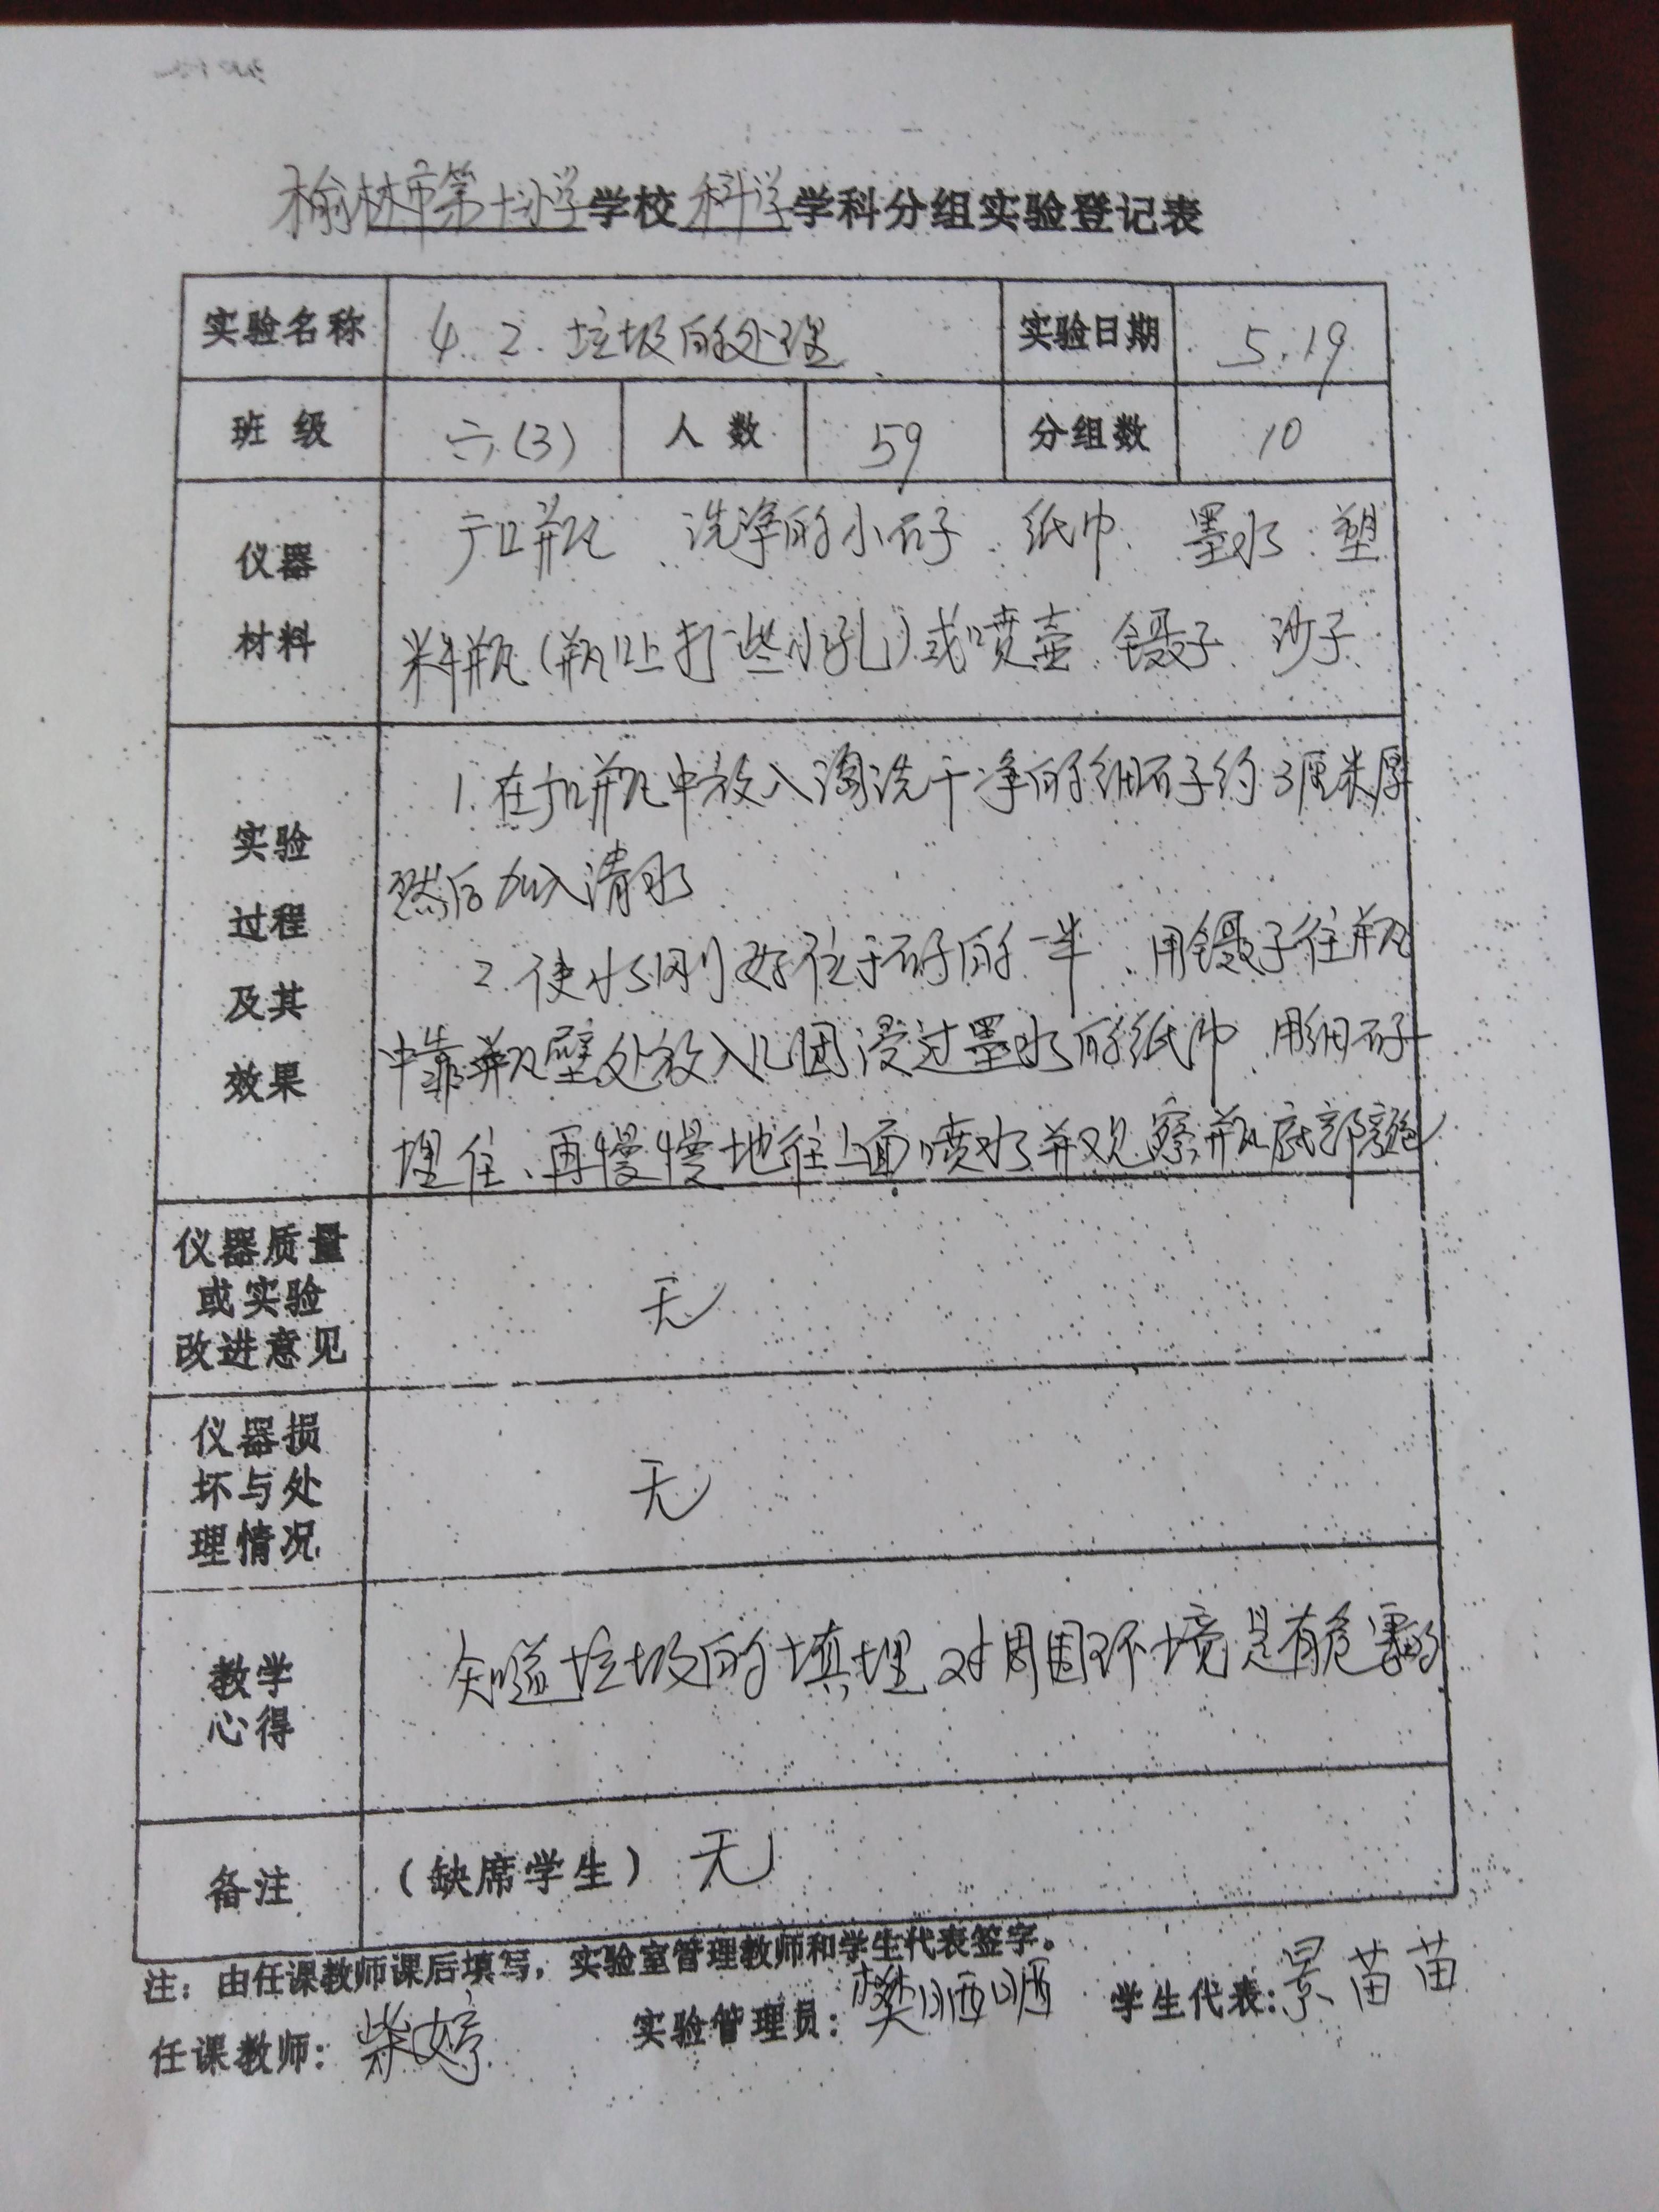 榆林市第十小学学校科学学科分组实验登记表
实验名称 4.2.垃圾的处理 实验日期 5.19
班级 六(3) 人数 59 分组数 10
仪器
材料
广口瓶、洗净的小石子、纸巾、墨水、塑
料瓶(瓶口上打一些小孔)或喷壶、镊子、沙子、
实验
过程
及其
效果
1.在广口瓶中放入淘洗干净的细石子约3厘米厚
然后加入清水
2.使水刚好位于石子的一半、用镊子往瓶
中靠瓶壁处放入几团浸过墨水的纸巾、用细石子
埋住、再慢慢地往上面喷水并观察瓶底部颜色
仪器质量
或实验
改进意见
无
仪器损
坏与处
理情况
无
教学
心得
知道垃圾的填埋对周围环境是有危害的
备注 (缺席学生) 无
注：由任课教师课后填写，实验室管理教师和学生代表签字。
任课教师：柴婷 实验管理员：樊 学生代表：景苗苗